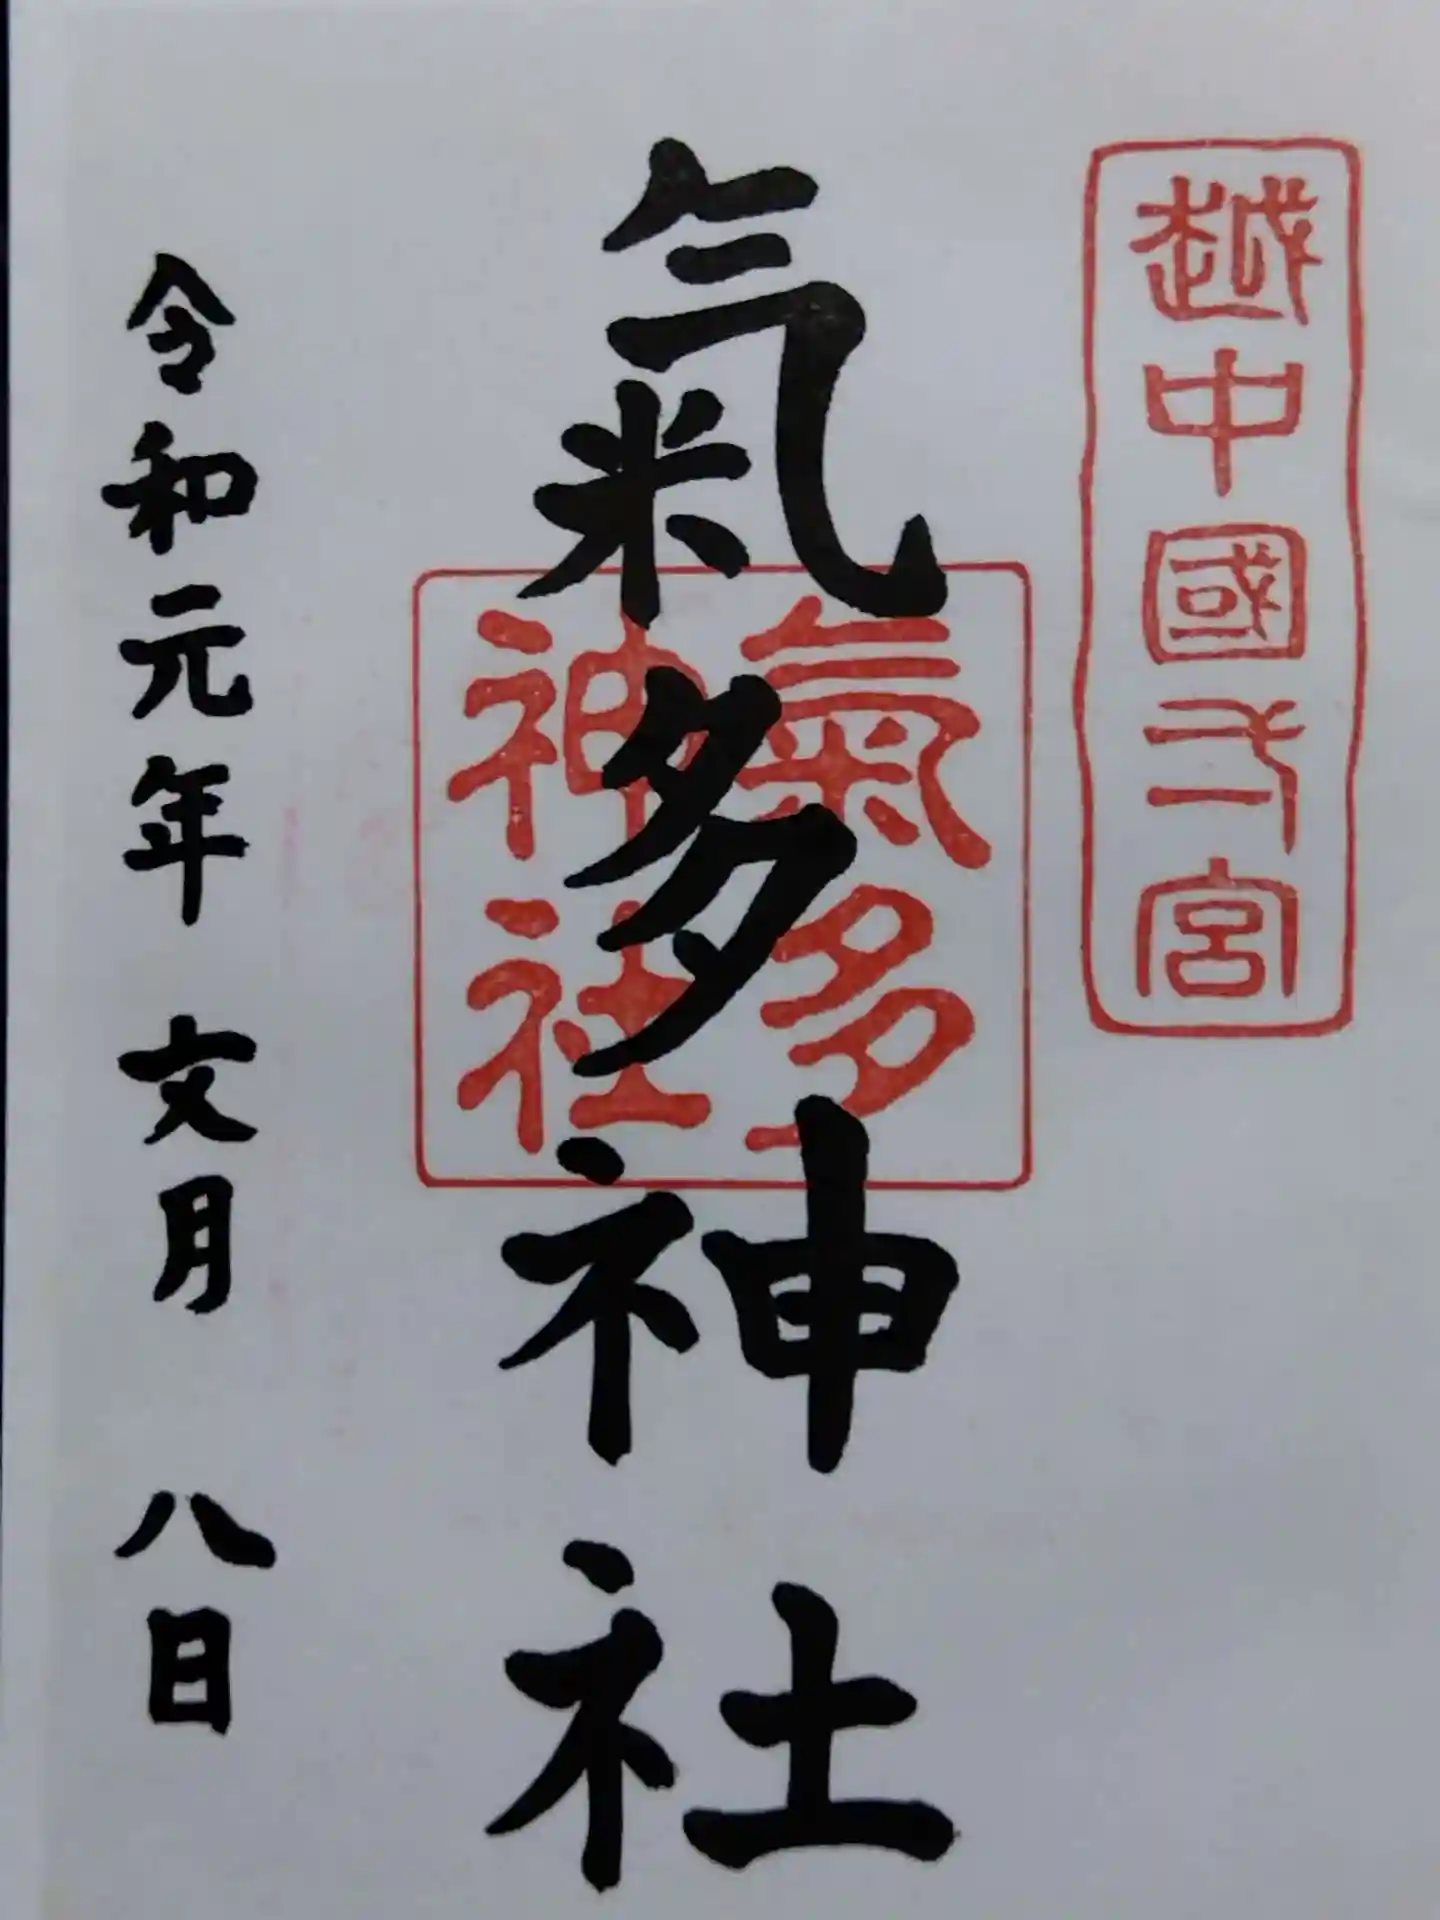 越中國一宮
氣多神社
氣多
神社
令和元年 文月 八日